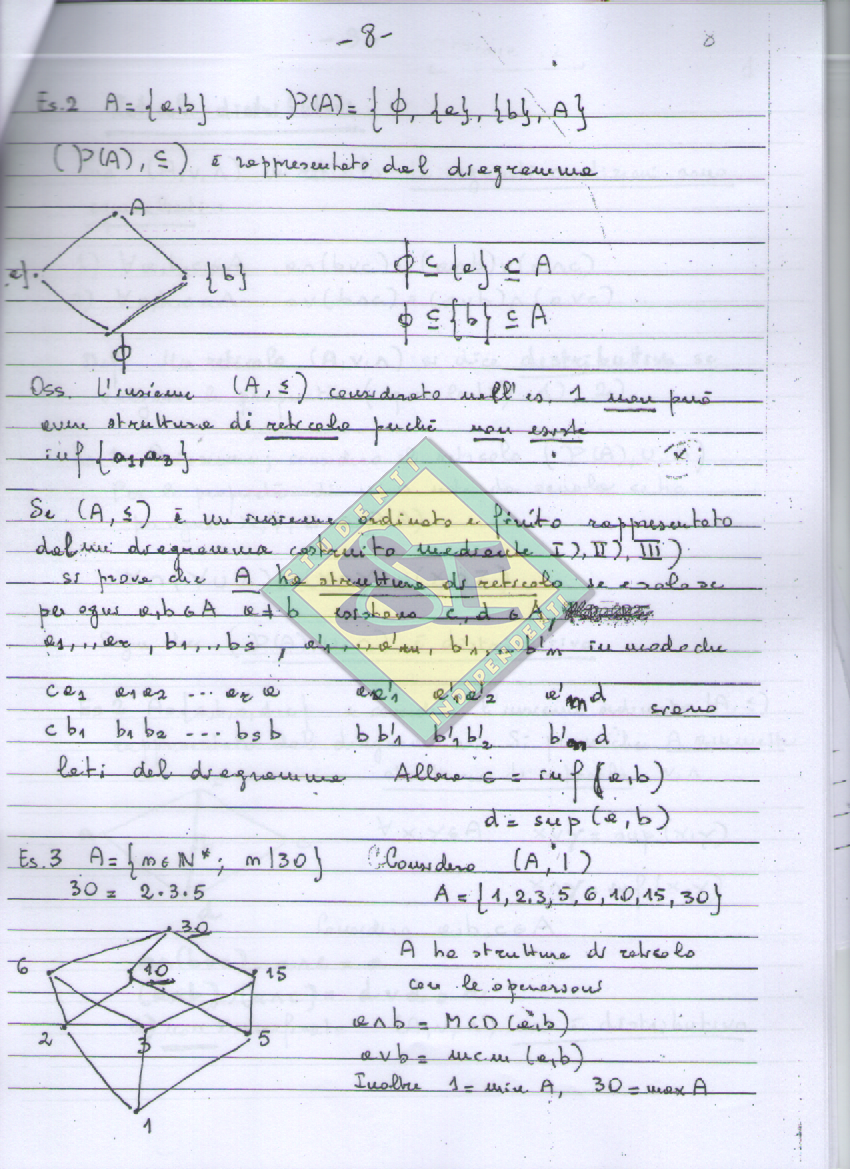 -8-
8
Es.2 A={a,b} P(A)={ϕ, {a}, {b}, A}
(P(A), ⊆) è rappresentato dal diagramma
A
a}
{b}
ϕ
ϕ ⊆ {a} ⊆ A
ϕ ⊆ {b} ⊆ A
Oss. L'insieme (A, ≤) considerato nell'es. 1 non può
aver struttura di reticolo perchè non esiste
inf {a1, a2}
(x)
Se (A, ≤) è un insieme ordinato e finito rappresentato
dal un diagramma costruito mediante I), II), III)
si prova che A ha struttura di reticolo se e solo se
per ogni a,b ∈ A a≠b esistono c, d ∈ A,
a1,..,ar, b1,..bs, a'1,...a'm, b'1,..b'n in modo che
ca1 a1a2 ... ar a aa'1 a'1a'2 a'm d siano
cb1 b1b2 ... bs b bb'1 b'1b'2 b'n d
lati del diagramma Allora c = inf (a,b)
d = sup (a,b)
STUDENTI
INDIPENDENTI
Es.3 A={m∈N*; m|30} Considero (A, |)
30 = 2·3·5 A={1,2,3,5,6,10,15,30}
30
6
10
15
2
3
5
1
A ha struttura di reticolo
con le operazioni
a∧b = MCD (a,b)
a∨b = mcm (a,b)
Inoltre 1=min A, 30=max A